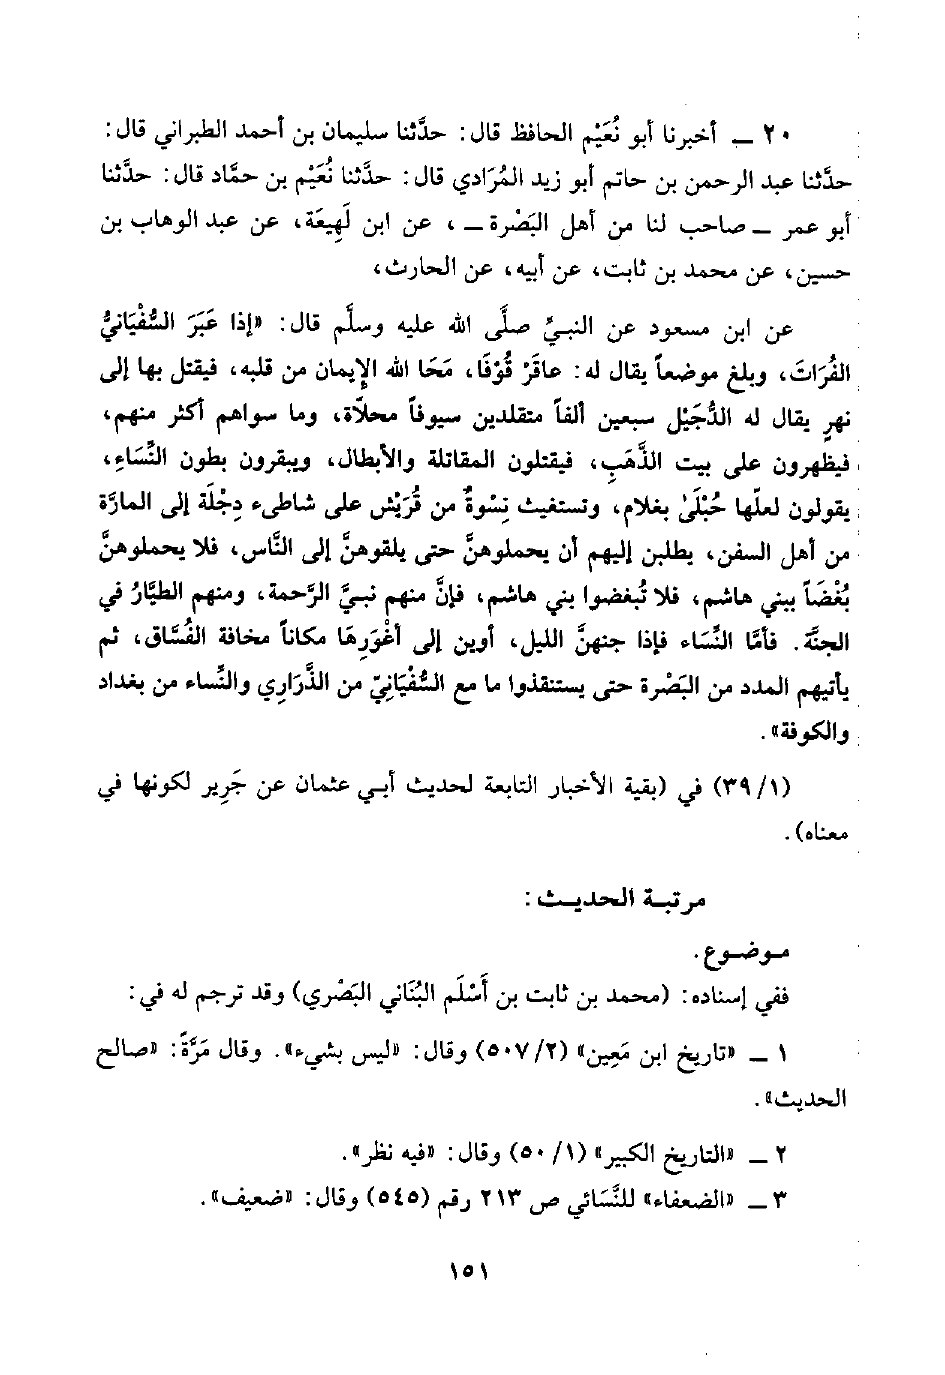 ٢٠ ــ أخبرنا أبو نُعَيْم الحافظ قال: حدَّثنا سليمان بن أحمد الطبراني قال:
حدَّثنا عبد الرحمن بن حاتم أبو زيد المُرَادي قال: حدَّثنا نُعَيْم بن حمَّاد قال: حدَّثنا
أبو عمر ــ صاحب لنا من أهل البَصْرة ــ، عن ابن لَهِيعَة، عن عبد الوهاب بن
حسين، عن محمد بن ثابت، عن أبيه، عن الحارث،
عن ابن مسعود عن النبيِّ صلَّى الله عليه وسلَّم قال: «إذا عَبَرَ السُّفْيَانيُّ
الفُرَاتَ، وبلغ موضعاً يقال له: عاقَرْ قُوْفَا، مَحَا الله الإِيمان من قلبه، فيقتل بها إلى
نهرٍ يقال له الدُّجَيْل سبعين ألفاً متقلدين سيوفاً محلاَّة، وما سواهم أكثر منهم،
فيظهرون على بيت الذَّهَبِ، فيقتلون المقاتلة والأبطال، ويبقرون بطون النِّسَاءِ،
يقولون لعلّها حُبْلَىٰ بغلام، وتستغيث نِسْوةٌ من قُرَيْش على شاطىء دِجْلَة إلى المارَّة
من أهل السفن، يطلبن إليهم أن يحملوهنَّ حتى يلقوهنَّ إلى النَّاس، فلا يحملوهنَّ
بُغْضَاً ببني هاشم، فلا تُبغضوا بني هاشم، فإنَّ منهم نبيَّ الرَّحمة، ومنهم الطيَّارُ في
الجنَّة. فأمَّا النِّسَاء فإذا جنهنَّ الليل، أوين إلى أغْوَرِهَا مكاناً مخافة الفُسَّاق، ثم
يأتيهم المدد من البَصْرة حتى يستنقذوا ما مع السُّفْيَانِيّ من الذَّرَاري والنِّساء من بغداد
والكوفة».
(٣٩/١) في (بقية الأخبار التابعة لحديث أبي عثمان عن جَرِير لكونها في
معناه).
مرتبة الحديث:
موضوع.
ففي إسناده: (محمد بن ثابت بن أَسْلَم البُنَاني البَصْري) وقد ترجم له في:
١ ــ «تاريخ ابن مَعِين» (٥٠٧/٢) وقال: «ليس بشيء». وقال مَرَّةً: «صالح
الحديث».
٢ ــ «التاريخ الكبير» (٥٠/١) وقال: «فيه نظر».
٣ ــ «الضعفاء» للنَّسَائي ص ٢١٣ رقم (٥٤٥) وقال: «ضعيف».
١٥١